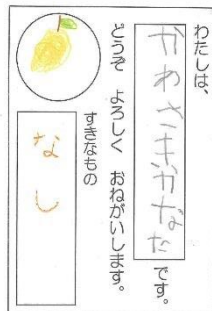 わたしは、
かわさきかなた です。
どうぞ よろしく おねがいします。
すきなもの
なし